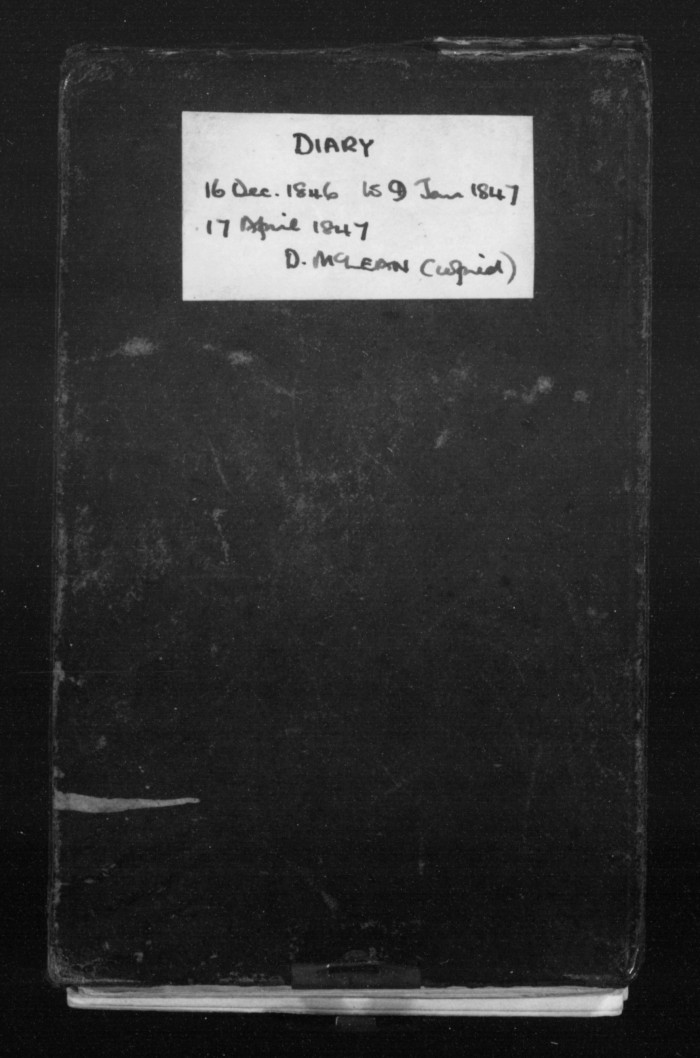 DIARY
16 Dec. 1846 to 9 Jan 1847
17 April 1847
D. McLEAN (copied)